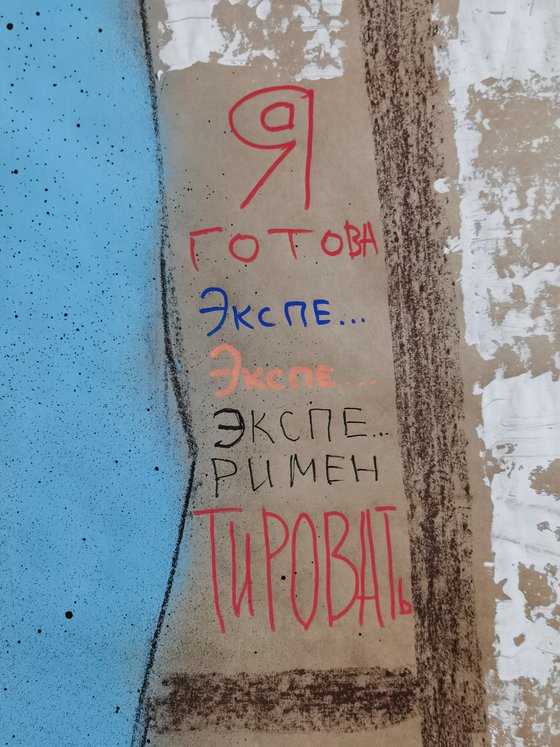 Я
ГОТОВА
Экспе...
Экспе....
ЭКСПЕ...
РИМЕН
ТИРОВАТЬ